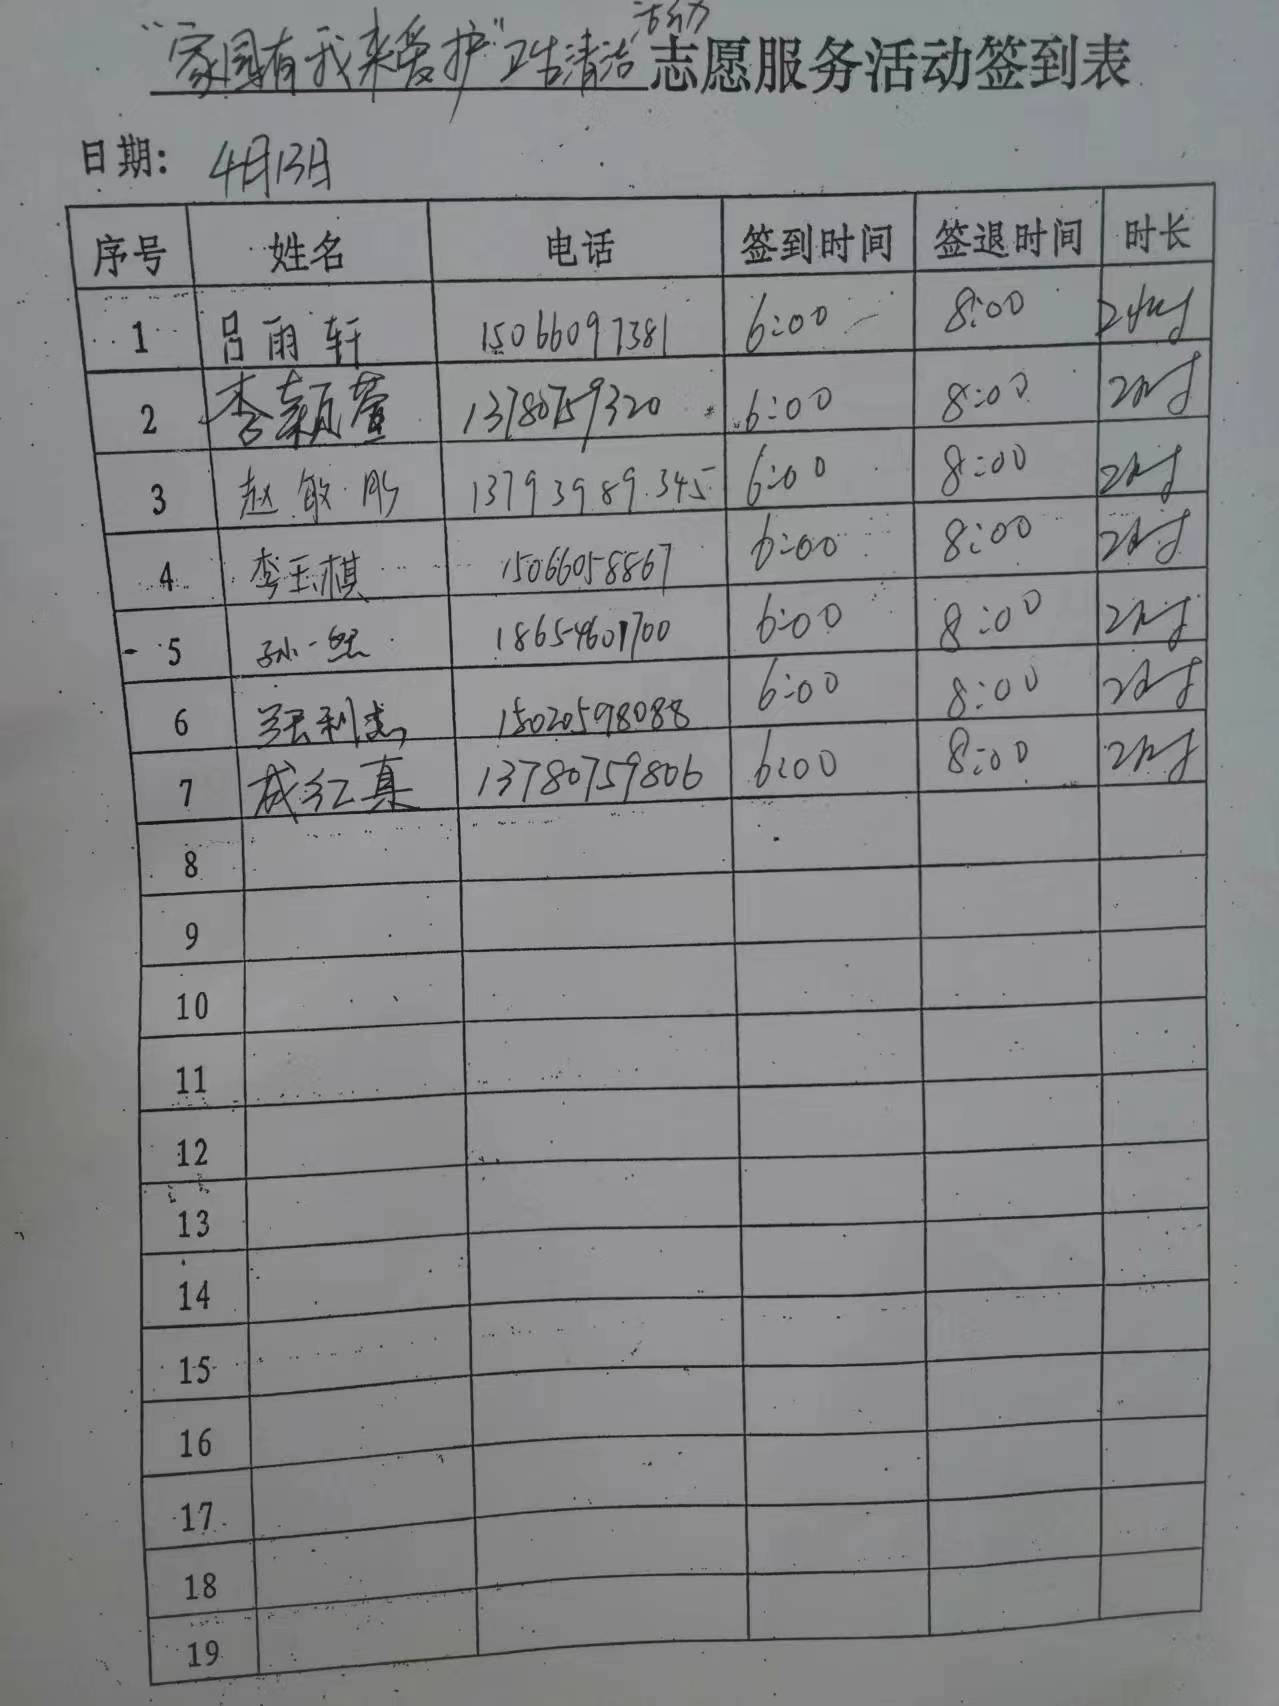 活动
“家园有我来爱护”卫生清洁志愿服务活动签到表
日期: 4月13日
序号 姓名 电话 签到时间 签退时间 时长
1 吕雨轩 15066097381 6:00 8:00 2小时
2 李颖萱 13780759320 6:00 8:00 2小时
3 赵敏彤 13793989345 6:00 8:00 2小时
4 李玉棋 15066058867 6:00 8:00 2小时
5 孙一 18654601700 6:00 8:00 2小时
6 张利志 15020598088 6:00 8:00 2小时
7 成红真 13780759806 6:00 8:00 2小时
8
9
10
11
12
13
14
15
16
17
18
19